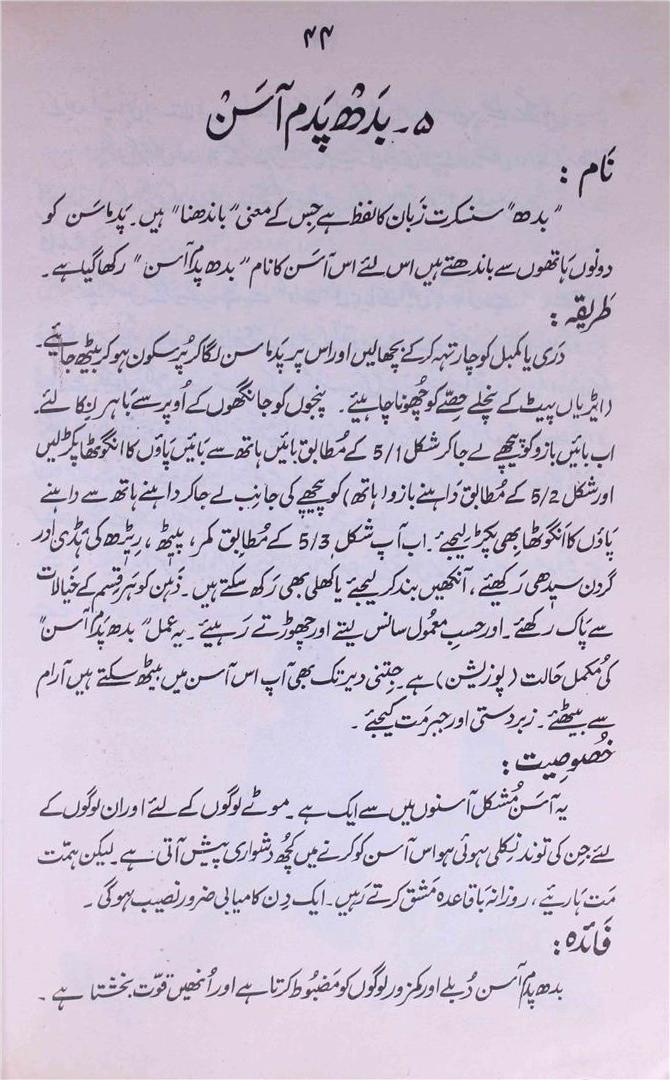 ۴۴
۵۔ بَدْھ پَدَم آسَنْ
نَام :
"بدھ" سنسکرت زَبان کا لفظ ہے جس کے معنی "باندھنا" ہیں۔ پَدماسَن کو
دونوں ہاتھوں سے باندھتے ہیں اس لئے اس آسن کا نام "بدھ پدم آسن" رکھا گیا ہے۔
طَریقہ :
دَری یا کمبل کو چار تہہ کر کے بچھا لیں اور اس پر پَدماسن لگا کر پُرسکون ہو کر بیٹھ جائیے۔
(ایڑیاں پیٹ کے نچلے حِصّے کو چُھونا چاہیئے۔ پنجوں کو جانگھوں کے اُوپر سے باہر نِکالئے۔
اب بائیں بازو کو پیچھے لے جا کر شکل 5/1 کے مُطابق بائیں ہاتھ سے بَائیں پاؤں کا انگوٹھا پکڑ لیں
اور شکل 5/2 کے مُطابق دَاہنے بازو (ہاتھ) کو پیچھے کی جانب لے جا کر داہنے ہاتھ سے داہنے
پَاؤں کا اَنگوٹھا بھی پکڑ لیجئے۔ اب آپ شکل 5/3 کے مُطابق کمر، پیٹھ، ریڑھ کی ہَڈی اور
گردن سیدھی رَکھیئے، آنکھیں بند کر لیجئے یا کھلی بھی رَکھ سکتے ہیں۔ ذہن کو ہر قِسم کے خیالات
سے پاک رکھئے۔ اور حسبِ معمُول سانس لیتے اور چھوڑتے رَہیئے۔ یہ عمل "بدھ پَدم آسن"
کی مُکمل حَالت (پوزیشن) ہے۔ جِتنی دیر تک بھی آپ اس آسن میں بیٹھ سکتے ہیں آرام
سے بیٹھئے۔ زبردستی اور جبر مَت کیجئے۔
خصُوصِیت :
یہ آسَن مُشکل آسنوں میں سے ایک ہے۔ موٹے لوگوں کے لئے اور ان لوگوں کے
لئے جِن کی توند نِکلی ہوئی ہو اس آسن کو کرنے میں کچُھ دشواری پیش آتی ہے۔ لیکن ہِمّت
مَت ہاریئے، روزانہ بَاقاعدہ مَشق کرتے رَہیں۔ ایک دِن کامیابی ضرور نصیب ہو گی۔
فَائدہ :
بدھ پدم آسن دُبلے اور کمزور لوگوں کو مَضبُوط کرتا ہے اور اُنھیں قوّت بخشتا ہے۔